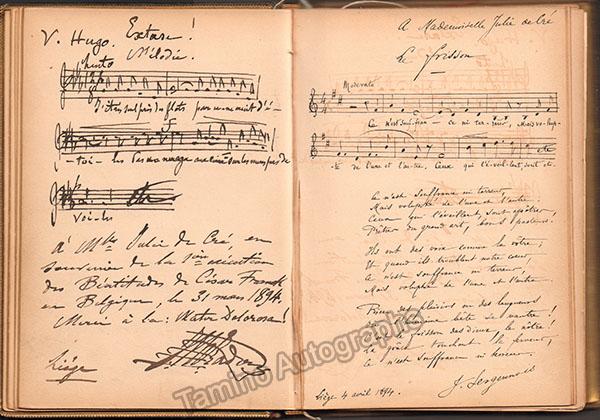 V. Hugo. Extase !
Mélodie.
J'étais seul près des flots par une nuit d'é -
- toi - les Pas un nuage aux cieux sur les mers pas de
voi-les
A Mlle Julie de Cré, en
souvenir de la 1ère exécution
des Béatitudes de César Franck
en Belgique, le 31 mars 1894.
Merci à la Mater Dolorosa !
Liège
A Mademoiselle Julie de Cré
Le frisson
Moderato
Ce n'est souffran - ce ni ter - reur, Mais volup -
- té de l'une et l'autre, Ceux qui l'éveillent, sont etc.
Ce n'est souffrance ni terreur,
Mais volupté de l'une et l'autre.
Ceux qui l'éveillent sont apôtres,
Prêtres du grand art, bons pasteurs.
Ils ont des voix comme la vôtre ;
Et quand ils troublent notre cœur,
Ce n'est souffrance ni terreur,
Mais volupté de l'une et l'autre.
des plaisirs ou des langueurs
humaine bête se vautre !
le frisson des dieux, le nôtre !
touchent le
Ce n'est souffrance ni
Liège 4 avril 1894.
Tamino Autographs